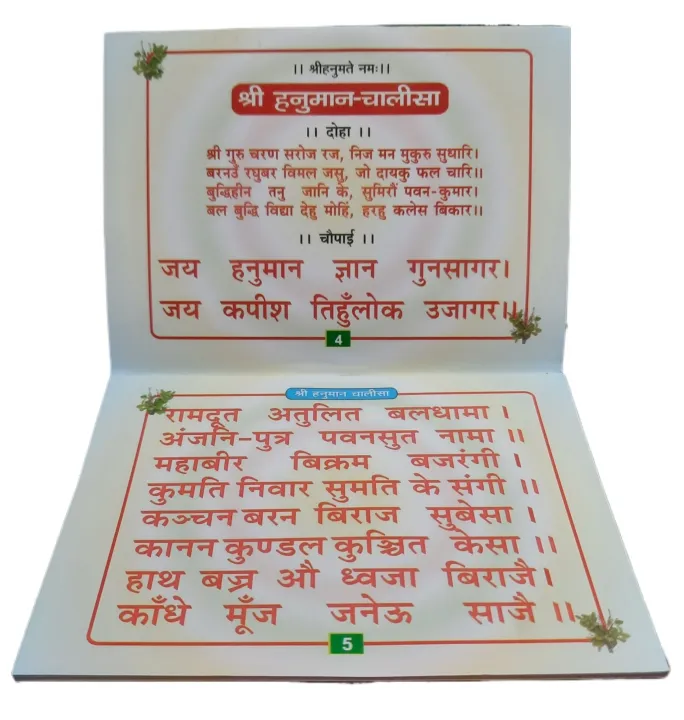 ।। श्रीहनुमते नमः।।
श्री हनुमान-चालीसा
।। दोहा ।।
श्री गुरु चरण सरोज रज, निज मन मुकुरु सुधारि।
बरनउँ रघुबर विमल जसु, जो दायकु फल चारि।।
बुद्धिहीन तनु जानि के, सुमिरौं पवन-कुमार।
बल बुद्धि विद्या देहु मोहिं, हरहु कलेस बिकार।।
।। चौपाई ।।
जय हनुमान ज्ञान गुनसागर।
जय कपीश तिहुँलोक उजागर।।
4
श्री हनुमान चालीसा
रामदूत अतुलित बलधामा ।
अंजनि-पुत्र पवनसुत नामा ।।
महाबीर बिक्रम बजरंगी ।
कुमति निवार सुमति के संगी ।।
कञ्चन बरन बिराज सुबेसा ।
कानन कुण्डल कुञ्चित केसा ।।
हाथ बज्र औ ध्वजा बिराजै।
काँधे मूँज जनेऊ साजै ।।
5